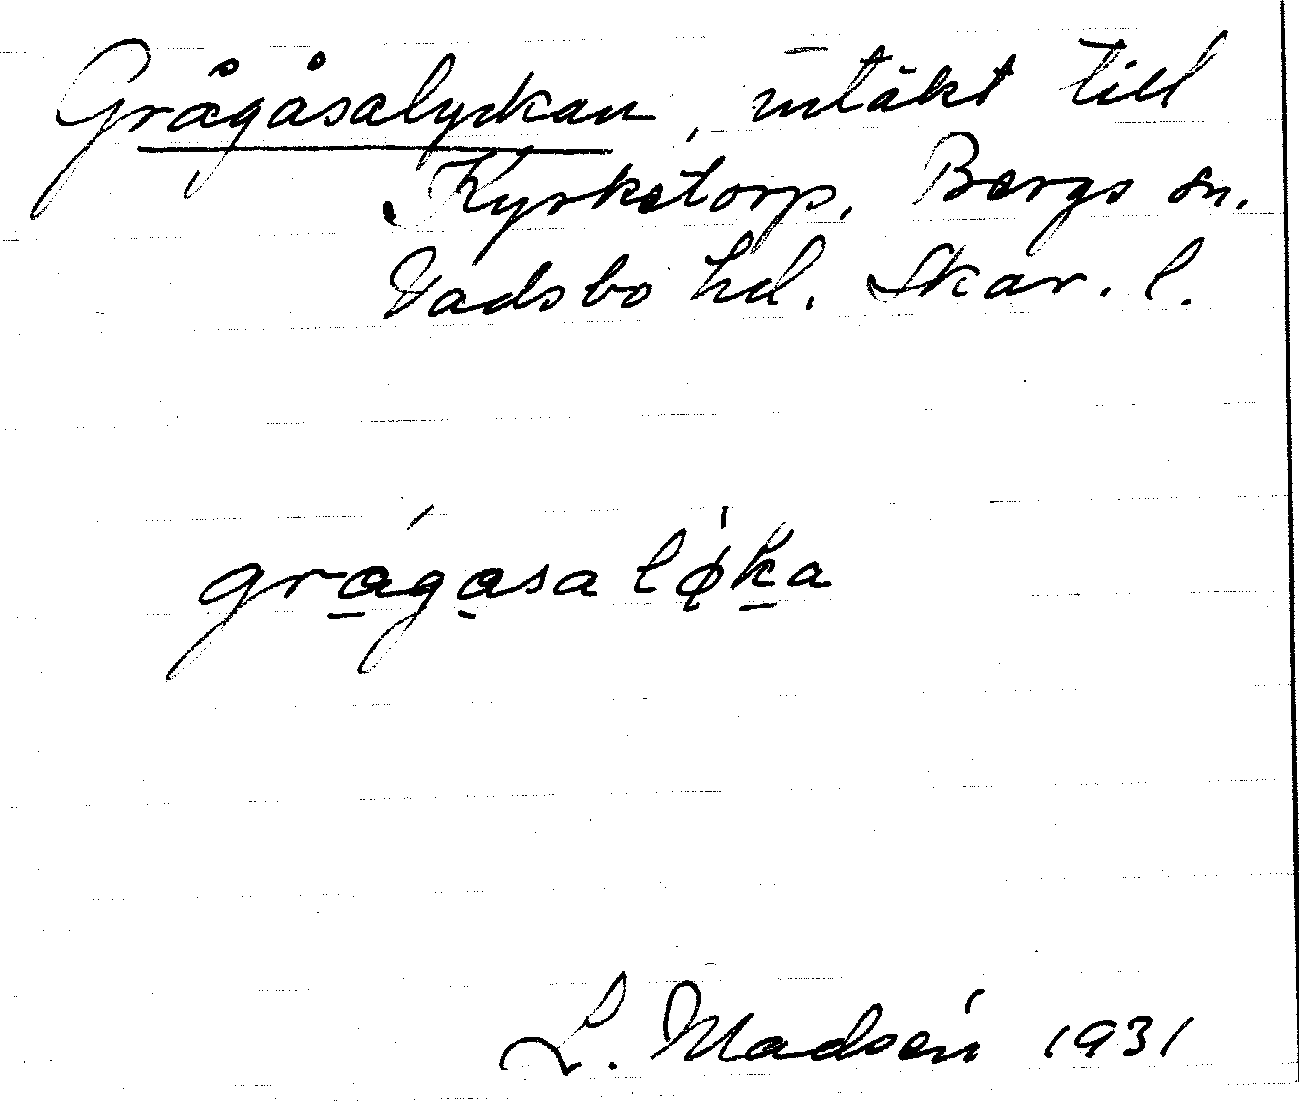 Grågåsalyckan, intäkt till
Kyrketorp. Bergs sn.
Vadsbo hd. Skar. l.
grågåsa løka
L. Madsén 1931